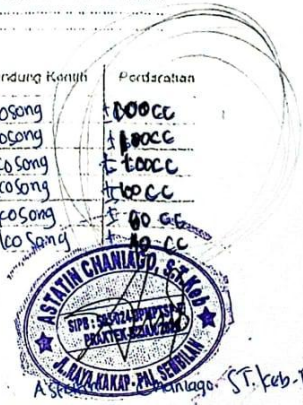 ndung Kemih Perdarahan
osong ± 100cc
osong ± 100cc
osong ± 100cc
cosong ± 60 cc
cosong ± 60 cc
kosong ± 40 cc
ASTATIN CHANIAGO, S.T.Keb
SIPB :
PRAKTEK BIDAN
JL. RAYA KAKAP - PAL SEMBILAN
Chaniago. ST.Keb.